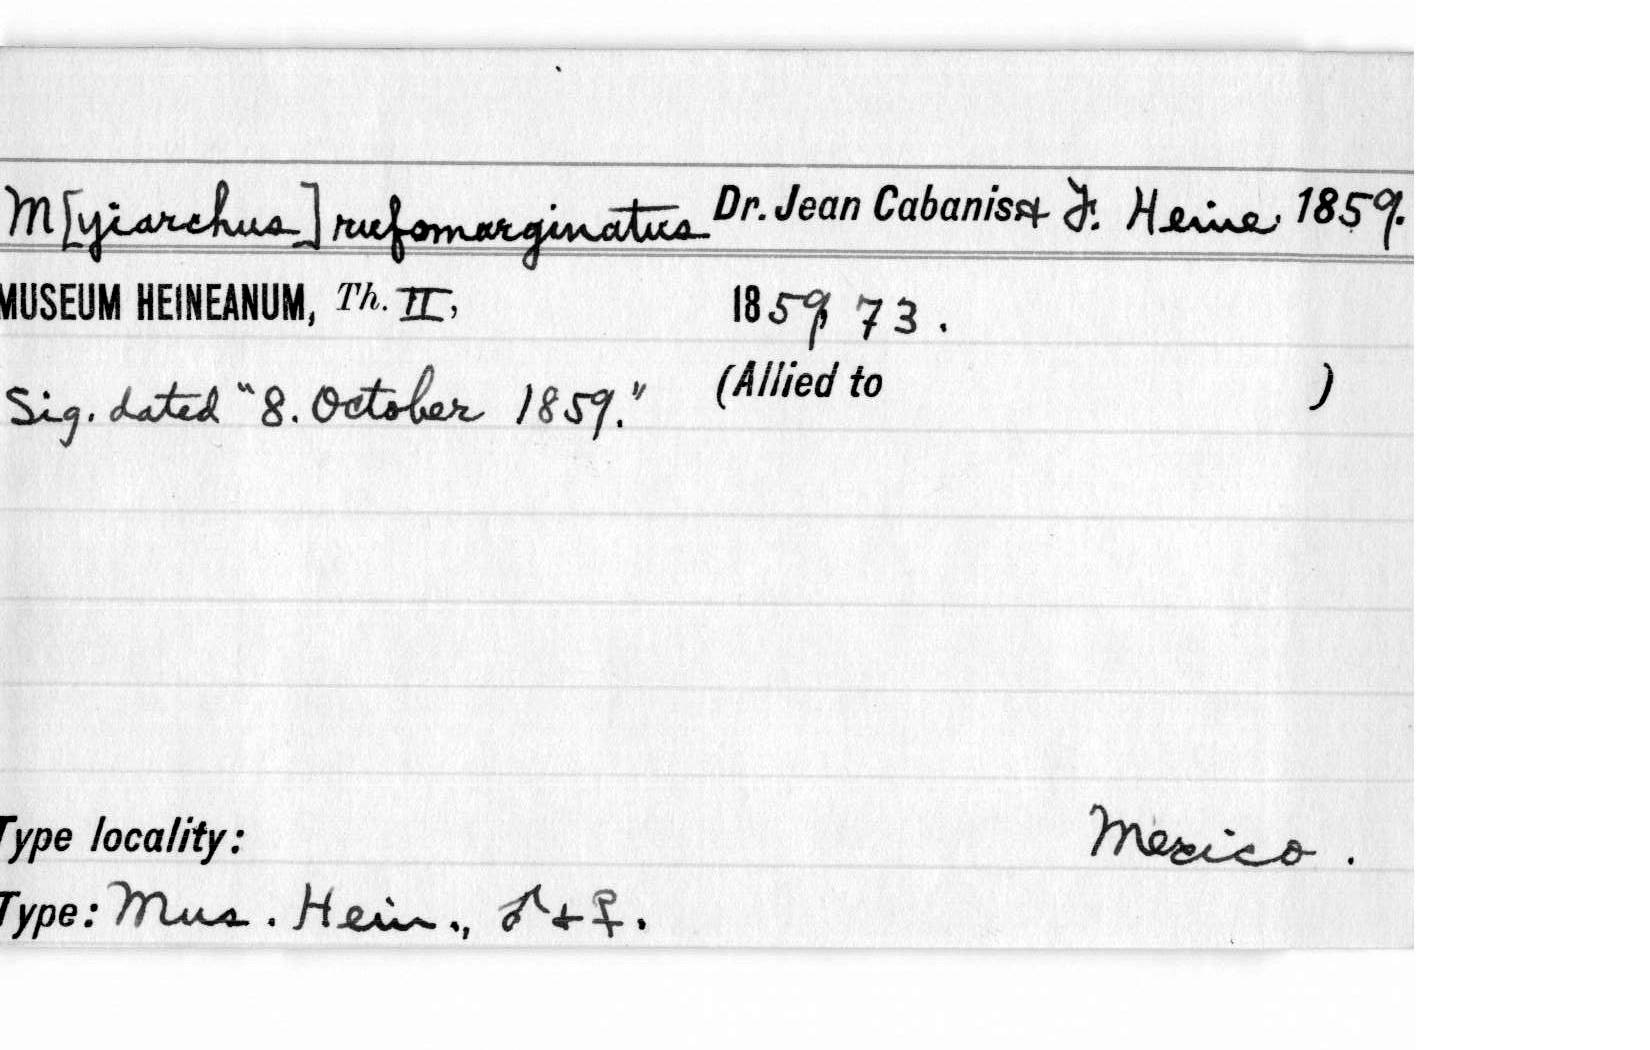 M[yiarchus] rufomarginatus Dr. Jean Cabanis & F. Heine 1859.
MUSEUM HEINEANUM, Th. II, 1859, 73.
Sig. dated "8. October 1859." (Allied to )
Type locality: Mexico.
Type: Mus. Hein., ♂ + ♀.